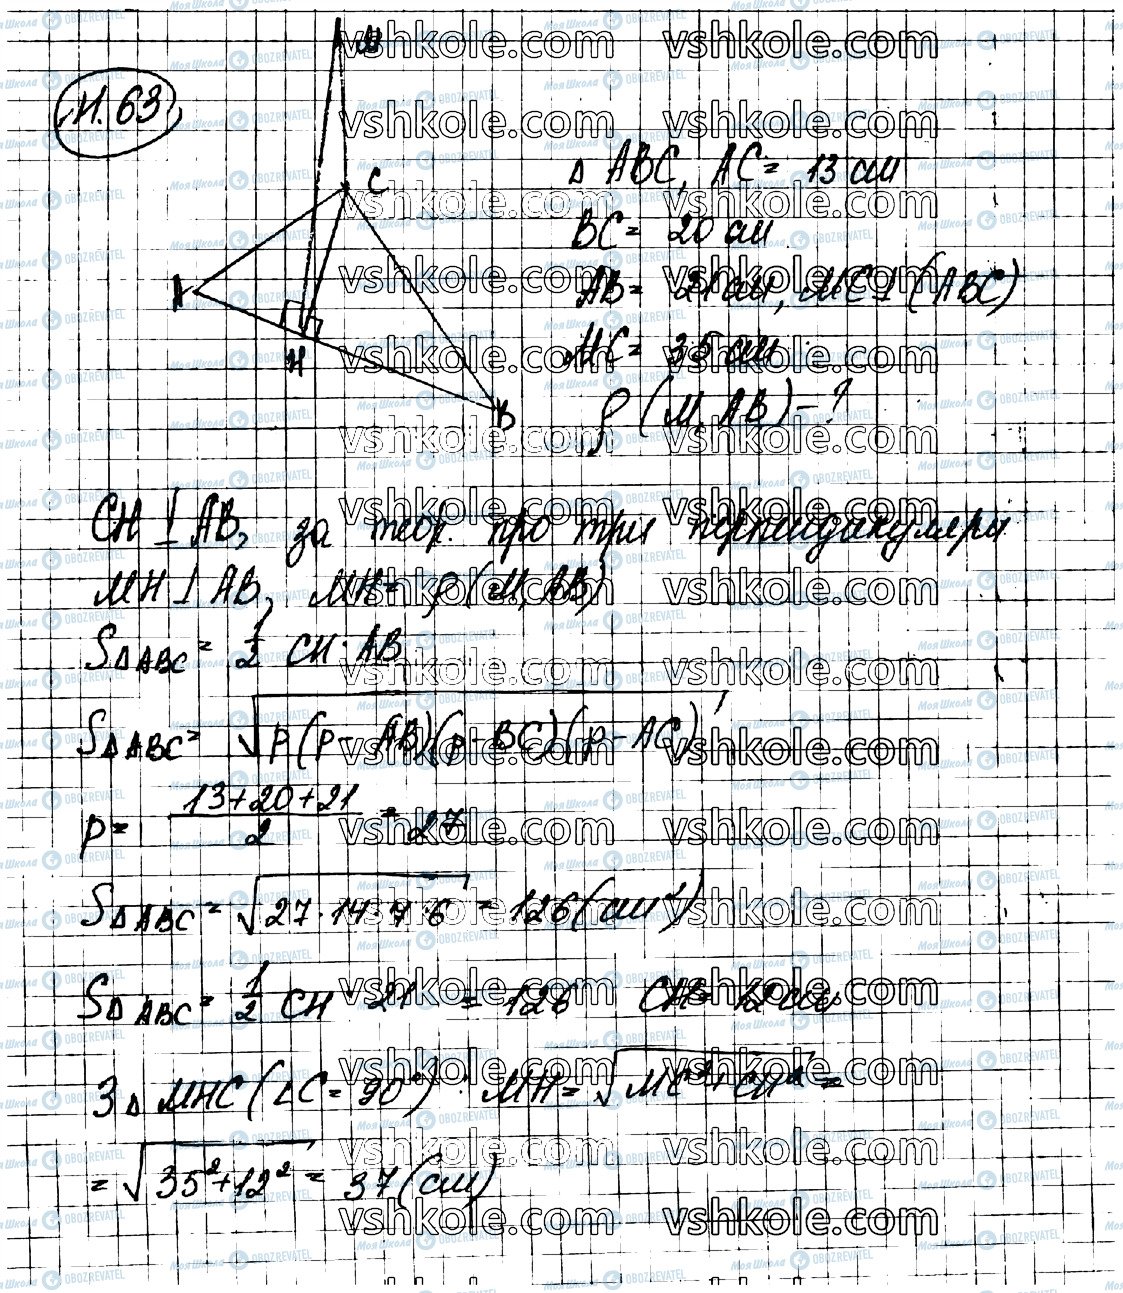 11.63
M
C
A
H
B
△ ABC, AC = 13 см
BC = 20 см
AB = 21 см, MC ⊥ (ABC)
MC = 35 см
ρ (M, AB) - ?
CH ⊥ AB, за теор. про три перпендикуляри
MH ⊥ AB, MH = ρ (M, AB)
S△ABC = 1/2 CH · AB
S△ABC = √(p(p - AB)(p - BC)(p - AC))
p = (13+20+21)/2 = 27
S△ABC = √(27 · 14 · 7 · 6) = 126 (см²)
S△ABC = 1/2 CH · 21 = 126 CH = 12 см
З △ MHC (∠C = 90°) MH = √(MC² + CH²) =
= √(35² + 12²) = 37 (см)
vshkole.com vshkole.com
Моя Школа OBOZREVATEL